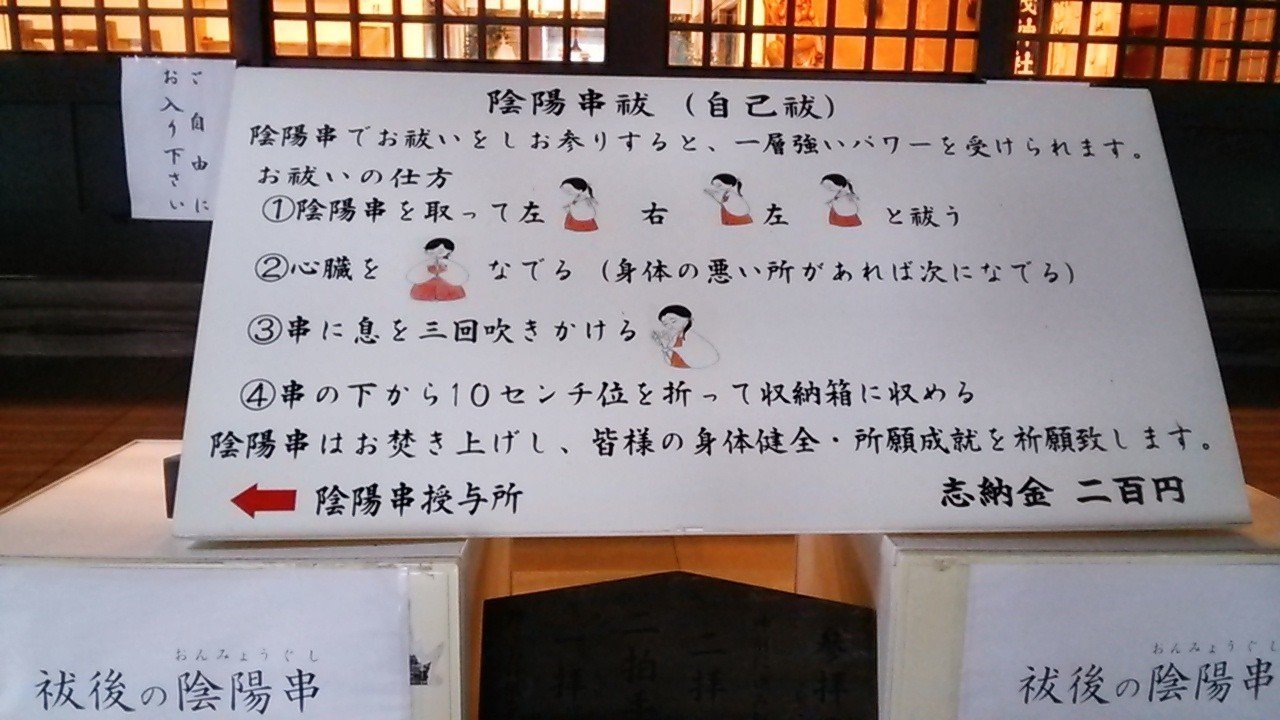 ご自由に
お入り下さい
神社
陰陽串祓（自己祓）
陰陽串でお祓いをしお参りすると、一層強いパワーを受けられます。
お祓いの仕方
①陰陽串を取って左 右 左 と祓う
②心臓を なでる（身体の悪い所があれば次になでる）
③串に息を三回吹きかける
④串の下から10センチ位を折って収納箱に収める
陰陽串はお焚き上げし、皆様の身体健全・所願成就を祈願致します。
陰陽串授与所 志納金 二百円
おんみょうぐし
祓後の陰陽串
おんみょうぐし
祓後の陰陽串
参拝
二拝
二拍手
一拝